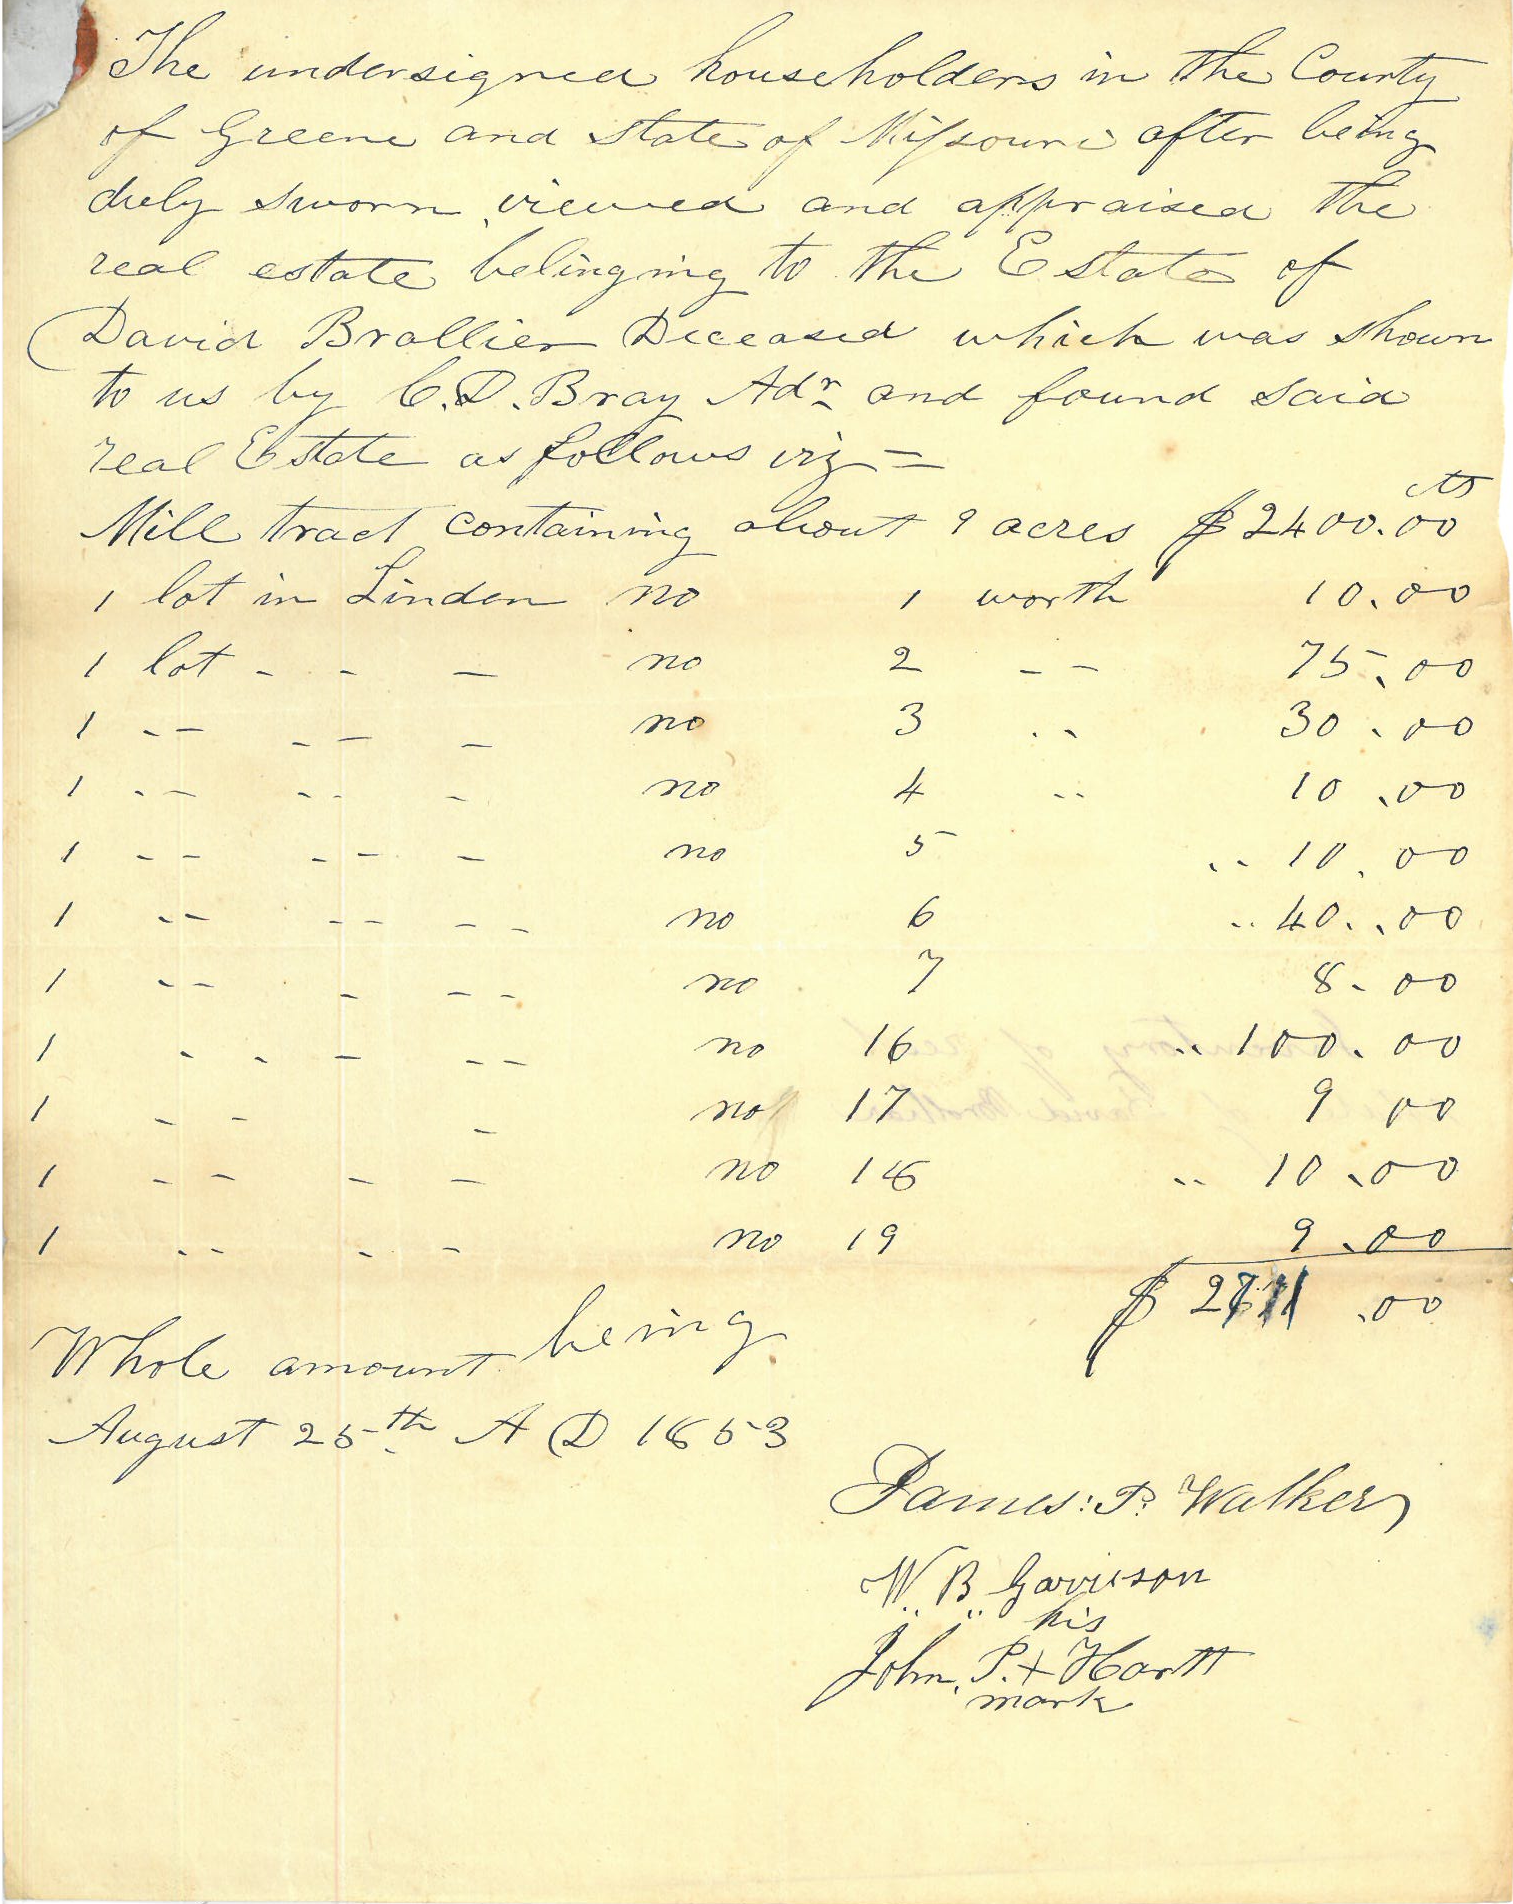 The undersigned householders in the County
of Greene and state of Missouri after being
duly sworn, viewed and appraised the
real estate belinging to the Estate of
David Brallier Deceased which was shown
to us by C. D. Bray Adr and found said
real Estate as follows viz =
cts
Mill tract containing about 9 acres $2400.00
1 lot in Linden no 1 worth 10.00
1 lot - - - no 2 - - 75.00
1 -- -- - no 3 .. 30.00
1 -- -- - no 4 .. 10.00
1 -- -- - no 5 .. 10.00
1 -- -- -- no 6 .. 40.00
1 -- - -- no 7 8.00
1 - - - -- no 16 .. 100.00
1 - - - no 17 9 00
1 -- - - no 18 .. 10.00
1 -- - - no 19 9.00
$ 2711.00
Whole amount being
August 25th A D 1853
James: P. Walker
W. B. Garrison
his
John. P. + Hartt
mark